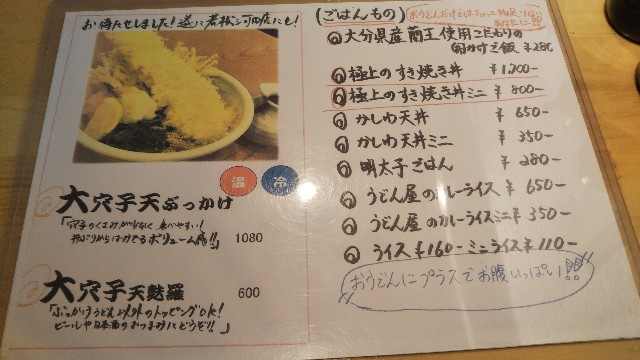 お待たせしました!遂に若松三可田店にも!
温 冷
大穴子天ぶっかけ
「穴子のくさみが少なく食べやすい!
丼ぶりからはみでるボリューム感!!」 1080
大穴子天麩羅 600
「ぶっかけうどん以外のトッピングOK!
ビールや日本酒のおつまみにどうぞ!!」
(ごはんもの)
おうどんだけじゃちょっと物足りない
あなたに!!
大分県産蘭王使用こだわりの
卵かけご飯 ¥280
極上のすき焼き丼 ¥1,200-
極上のすき焼き丼ミニ ¥800-
かしわ天丼 ¥650-
かしわ天丼ミニ ¥350-
明太子ごはん ¥280-
うどん屋のカレーライス ¥650-
うどん屋のカレーライスミニ ¥350-
ライス ¥160- ミニライス ¥110-
おうどんにプラスでお腹いっぱい!!!